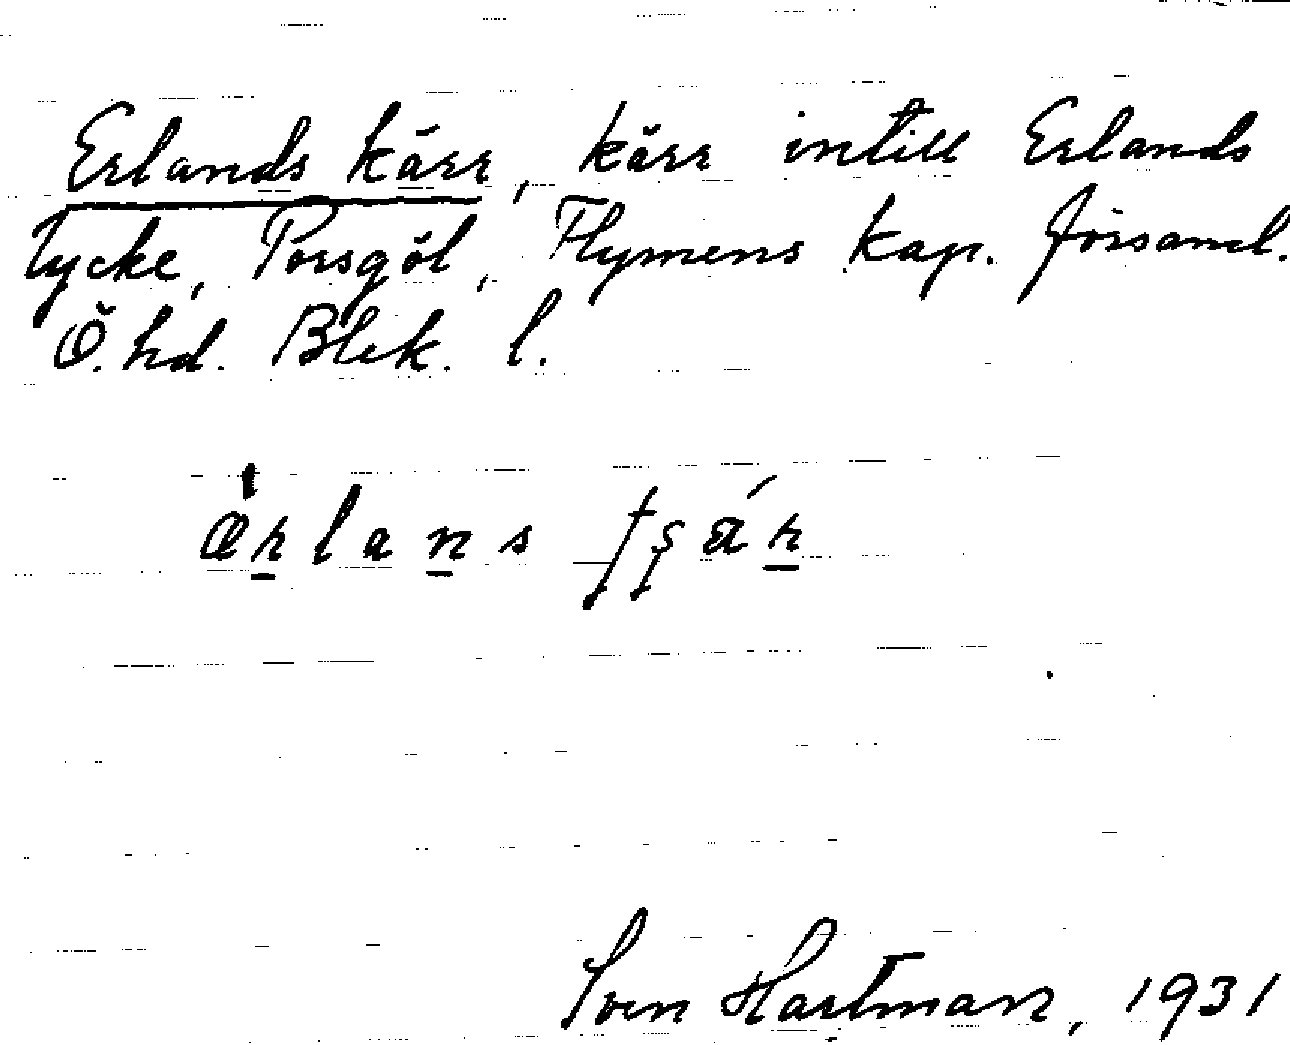 Erlands kärr, kärr intill Erlands
lycke, Porsgöl, Flymens kap. församl.
Ö. hd. Blek. l.
Sven Hartman, 1931